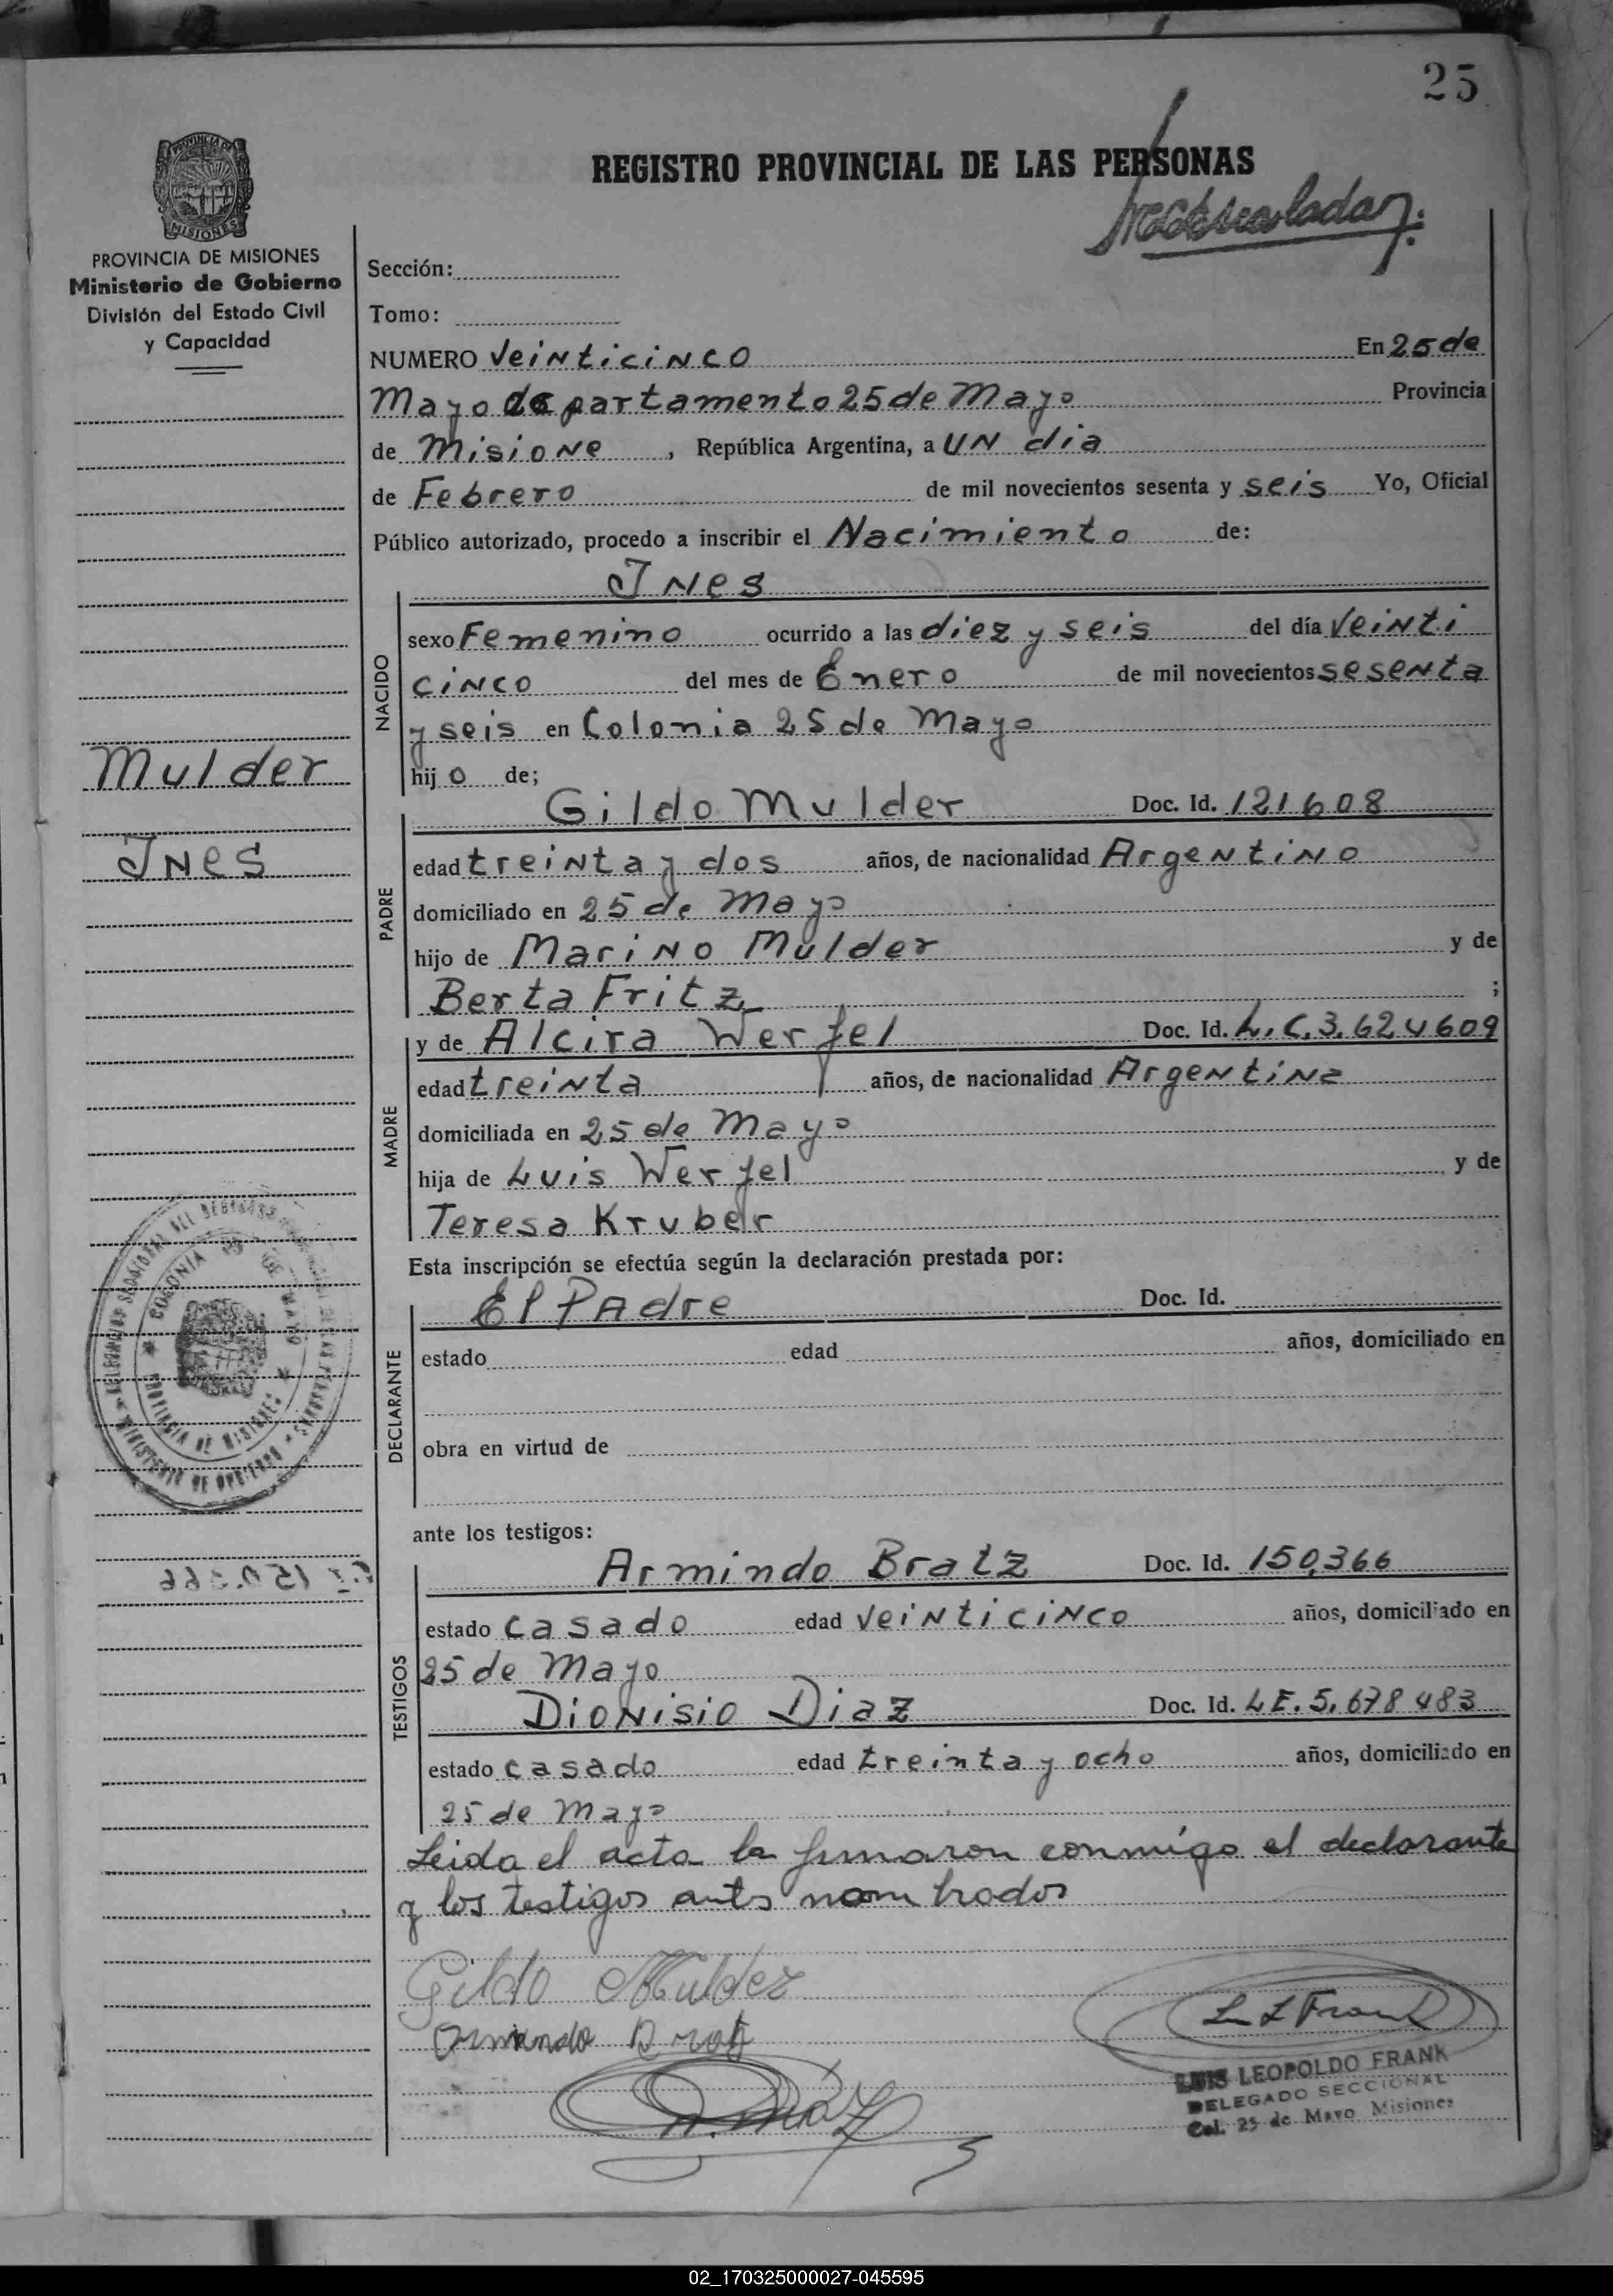 25
REGISTRO PROVINCIAL DE LAS PERSONAS
PROVINCIA DE
MISIONES
PROVINCIA DE MISIONES
Ministerio de Gobierno
División del Estado Civil
y Capacidad
Sección:
Tomo:
NUMERO Veinticinco En 25 de
Mayo departamento 25 de Mayo Provincia
de Misione , República Argentina, a un día
de Febrero de mil novecientos sesenta y seis Yo, Oficial
Público autorizado, procedo a inscribir el Nacimiento de:
Ines
NACIDO
sexo Femenino ocurrido a las diez y seis del día Veinti
cinco del mes de Enero de mil novecientos sesenta
y seis en Colonia 25 de Mayo
hijo de;
Mulder
Ines
Gildo Mulder Doc. Id. 121608
PADRE
edad treinta y dos años, de nacionalidad Argentino
domiciliado en 25 de Mayo
hijo de Marino Mulder y de
Berta Fritz ;
y de Alcira Werfel Doc. Id. L.C.3.624609
MADRE
edad treinta años, de nacionalidad Argentina
domiciliada en 25 de Mayo
hija de Luis Werfel y de
Teresa Kruber
Esta inscripción se efectúa según la declaración prestada por:
El Padre Doc. Id.
DECLARANTE
estado edad años, domiciliado en
obra en virtud de
COLONIA 25 DE MAYO
PROVINCIA DE MISIONES
MINISTERIO DE GOBIERNO
ante los testigos:
Armindo Bratz Doc. Id. 150,366
TESTIGOS
estado casado edad Veinticinco años, domiciliado en
25 de Mayo
Dionisio Diaz Doc. Id. LE. 5, 678483
estado casado edad treinta y ocho años, domiciliado en
25 de Mayo
Leida el acta la firmaron conmigo el declarante
y los testigos ants nombrados
Gildo Mulder
L L Frank
LUIS LEOPOLDO FRANK
DELEGADO SECCIONAL
Col. 25 de Mayo Misiones
02_170325000027-045595